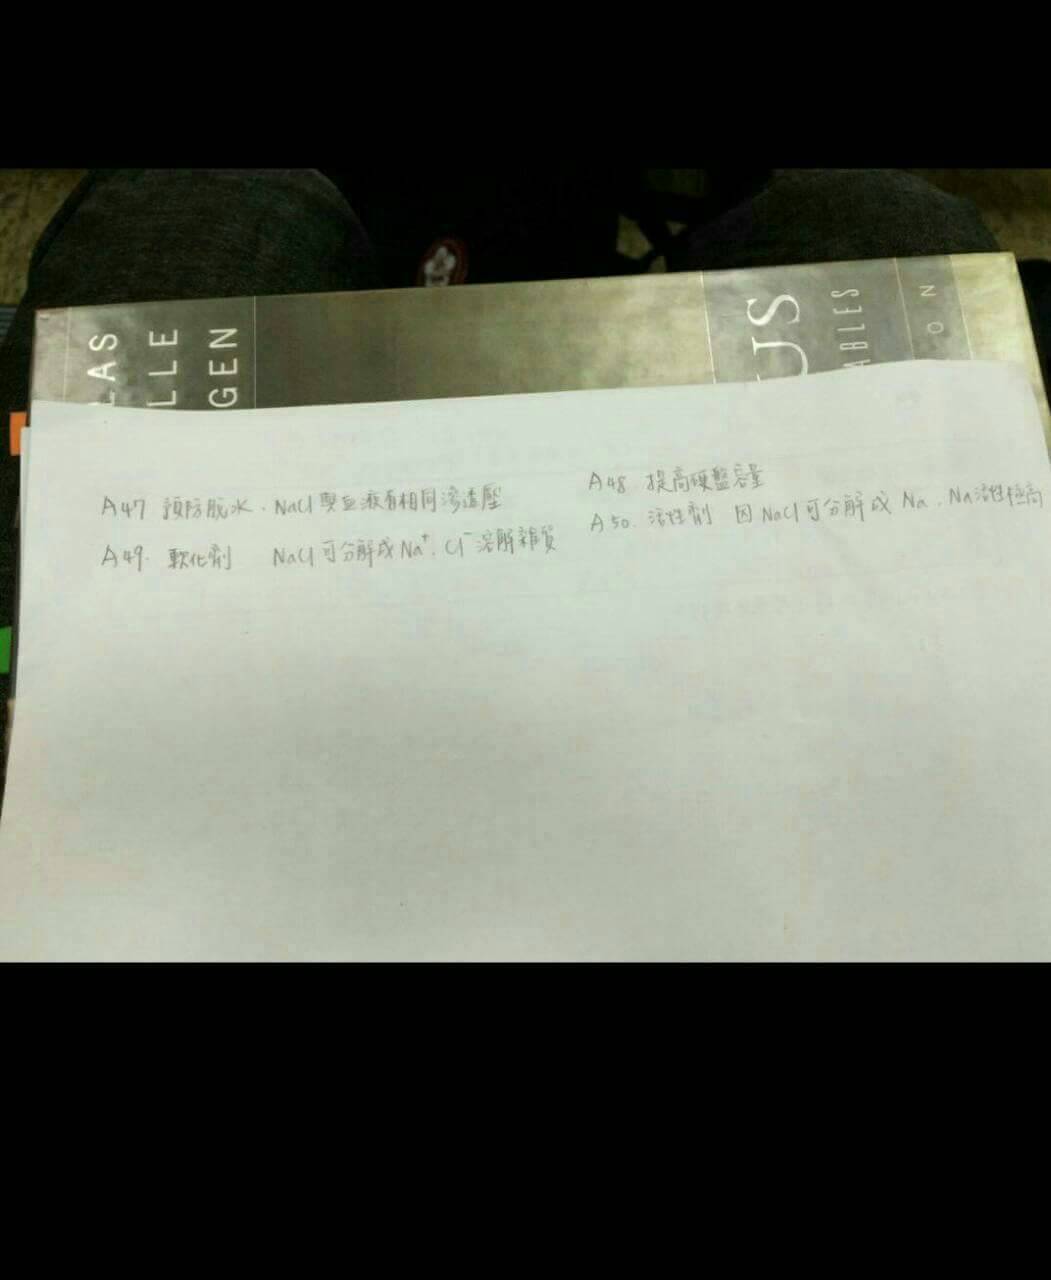 LAS
LLE
GEN
US
ABLES
ON
A47 預防脫水．NaCl與血液有相同滲透壓
A48 提高硬盤容量
A49. 軟化劑 NaCl可分解成Na⁺．Cl⁻溶解雜質
A50. 活性劑 因NaCl可分解成 Na．Na活性極高